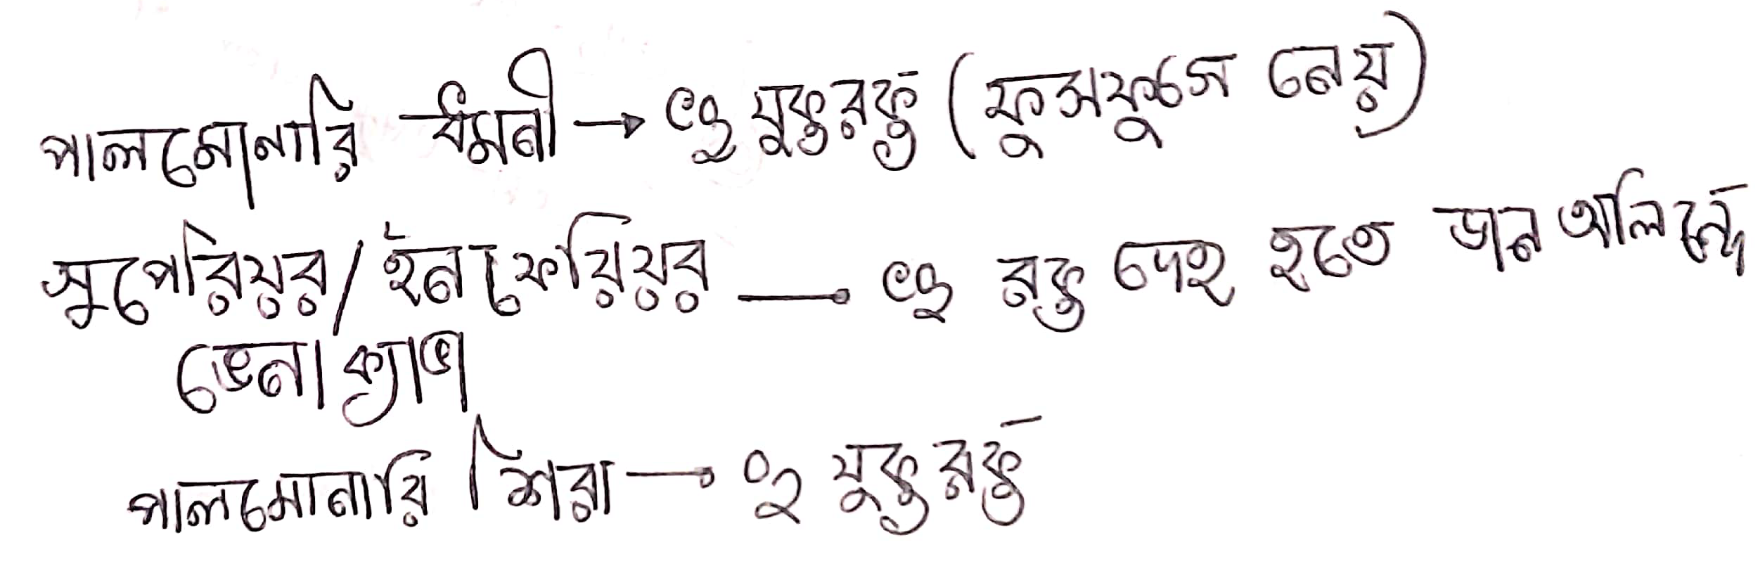 পালমোনারি ধমনী → CO₂ যুক্ত রক্ত (ফুসফুসে নেয়)
সুপেরিয়র/ইনফেরিয়র → CO₂ রক্ত দেহ হতে ডান অলিন্দে
ভেনা ক্যাভা
পালমোনারি শিরা → O₂ যুক্ত রক্ত